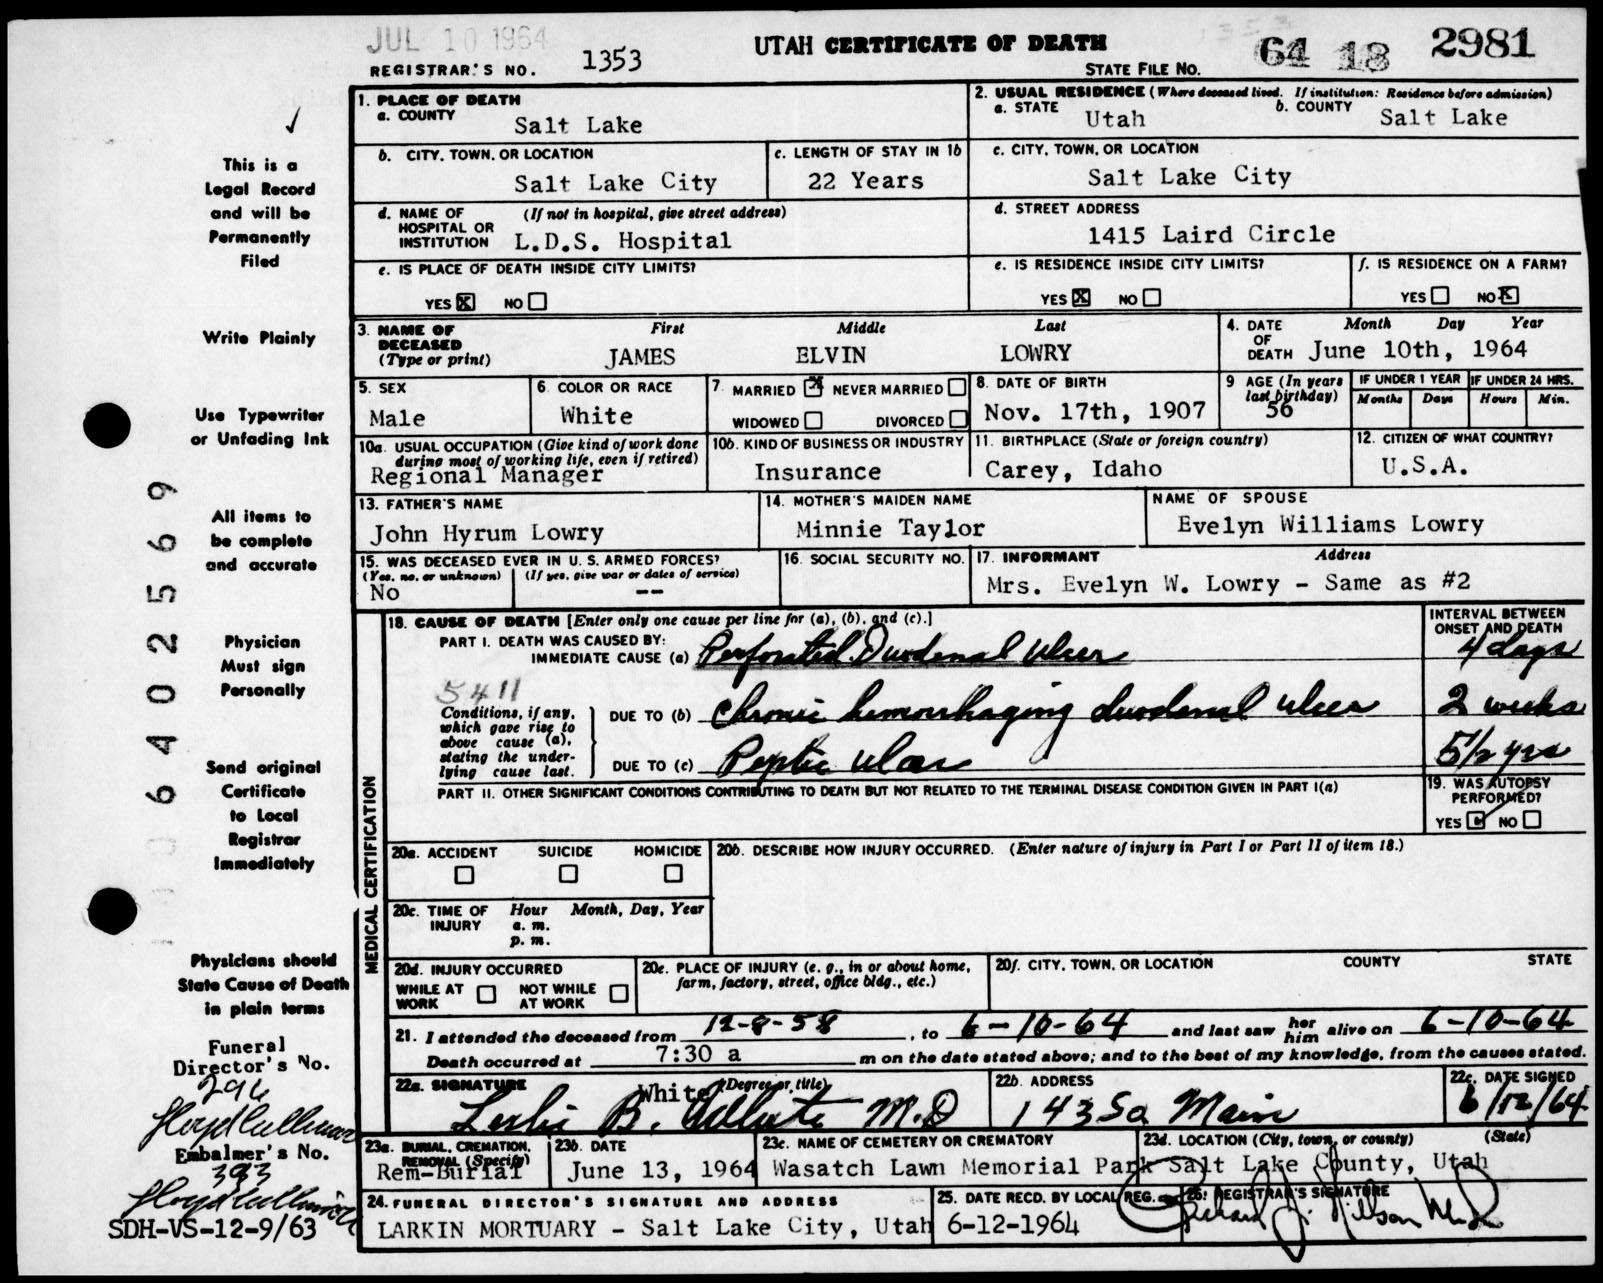 JUL 10 1964
REGISTRAR'S NO. 1353
UTAH CERTIFICATE OF DEATH
STATE FILE NO. 64 18 2981
1. PLACE OF DEATH
a. COUNTY
Salt Lake
2. USUAL RESIDENCE (Where deceased lived. If institution: Residence before admission)
a. STATE Utah
b. COUNTY Salt Lake
b. CITY, TOWN, OR LOCATION
Salt Lake City
c. LENGTH OF STAY IN 1b
22 Years
c. CITY, TOWN, OR LOCATION
Salt Lake City
d. NAME OF HOSPITAL OR INSTITUTION
(If not in hospital, give street address)
L.D.S. Hospital
d. STREET ADDRESS
1415 Laird Circle
e. IS PLACE OF DEATH INSIDE CITY LIMITS?
YES X NO
e. IS RESIDENCE INSIDE CITY LIMITS?
YES X NO
f. IS RESIDENCE ON A FARM?
YES NO X
3. NAME OF DECEASED
(Type or print)
First Middle Last
JAMES ELVIN LOWRY
4. DATE OF DEATH
Month Day Year
June 10th, 1964
5. SEX
Male
6. COLOR OR RACE
White
7. MARRIED X NEVER MARRIED
WIDOWED DIVORCED
8. DATE OF BIRTH
Nov. 17th, 1907
9 AGE (In years last birthday)
56
IF UNDER 1 YEAR
Months Days
IF UNDER 24 HRS.
Hours Min.
10a. USUAL OCCUPATION (Give kind of work done
during most of working life, even if retired)
Regional Manager
10b. KIND OF BUSINESS OR INDUSTRY
Insurance
11. BIRTHPLACE (State or foreign country)
Carey, Idaho
12. CITIZEN OF WHAT COUNTRY?
U.S.A.
13. FATHER'S NAME
John Hyrum Lowry
14. MOTHER'S MAIDEN NAME
Minnie Taylor
NAME OF SPOUSE
Evelyn Williams Lowry
15. WAS DECEASED EVER IN U. S. ARMED FORCES?
(Yes, no, or unknown) (If yes, give war or dates of service)
No --
16. SOCIAL SECURITY NO.
17. INFORMANT Address
Mrs. Evelyn W. Lowry - Same as #2
MEDICAL CERTIFICATION
18. CAUSE OF DEATH [Enter only one cause per line for (a), (b), and (c).]
INTERVAL BETWEEN ONSET AND DEATH
PART I. DEATH WAS CAUSED BY:
IMMEDIATE CAUSE (a) Perforated Duodenal Ulcer 4 days
5411
Conditions, if any,
which gave rise to
above cause (a),
stating the under-
lying cause last.
DUE TO (b) Chronic hemorrhaging duodenal ulcer 2 weeks
DUE TO (c) Peptic ulcer 5 1/2 yrs
PART II. OTHER SIGNIFICANT CONDITIONS CONTRIBUTING TO DEATH BUT NOT RELATED TO THE TERMINAL DISEASE CONDITION GIVEN IN PART I(a)
19. WAS AUTOPSY PERFORMED?
YES NO
20a. ACCIDENT SUICIDE HOMICIDE
20b. DESCRIBE HOW INJURY OCCURRED. (Enter nature of injury in Part I or Part II of item 18.)
20c. TIME OF INJURY
Hour Month, Day, Year
a. m.
p. m.
20d. INJURY OCCURRED
WHILE AT WORK NOT WHILE AT WORK
20e. PLACE OF INJURY (e. g., in or about home,
farm, factory, street, office bldg., etc.)
20f. CITY, TOWN, OR LOCATION COUNTY STATE
21. I attended the deceased from 12-8-58, to 6-10-64 and last saw her him alive on 6-10-64
Death occurred at 7:30 a m on the date stated above; and to the best of my knowledge, from the causes stated.
22a. SIGNATURE (Degree or title)
White
Leslie B. White M.D
22b. ADDRESS
143 So Main
22c. DATE SIGNED
6/12/64
23a. BURIAL, CREMATION, REMOVAL (Specify)
Rem-Burial
23b. DATE
June 13, 1964
23c. NAME OF CEMETERY OR CREMATORY
Wasatch Lawn Memorial Park
23d. LOCATION (City, town, or county) (State)
Salt Lake County, Utah
24. FUNERAL DIRECTOR'S SIGNATURE AND ADDRESS
LARKIN MORTUARY - Salt Lake City, Utah
25. DATE RECD. BY LOCAL REG.
6-12-1964
26. REGISTRAR'S SIGNATURE
This is a
Legal Record
and will be
Permanently
Filed
Write Plainly
Use Typewriter
or Unfading Ink
All items to
be complete
and accurate
Physician
Must sign
Personally
Send original
Certificate
to Local
Registrar
Immediately
Physicians should
State Cause of Death
in plain terms
Funeral
Director's No.
296
Embalmer's No.
393
SDH-VS-12-9/63
6402569